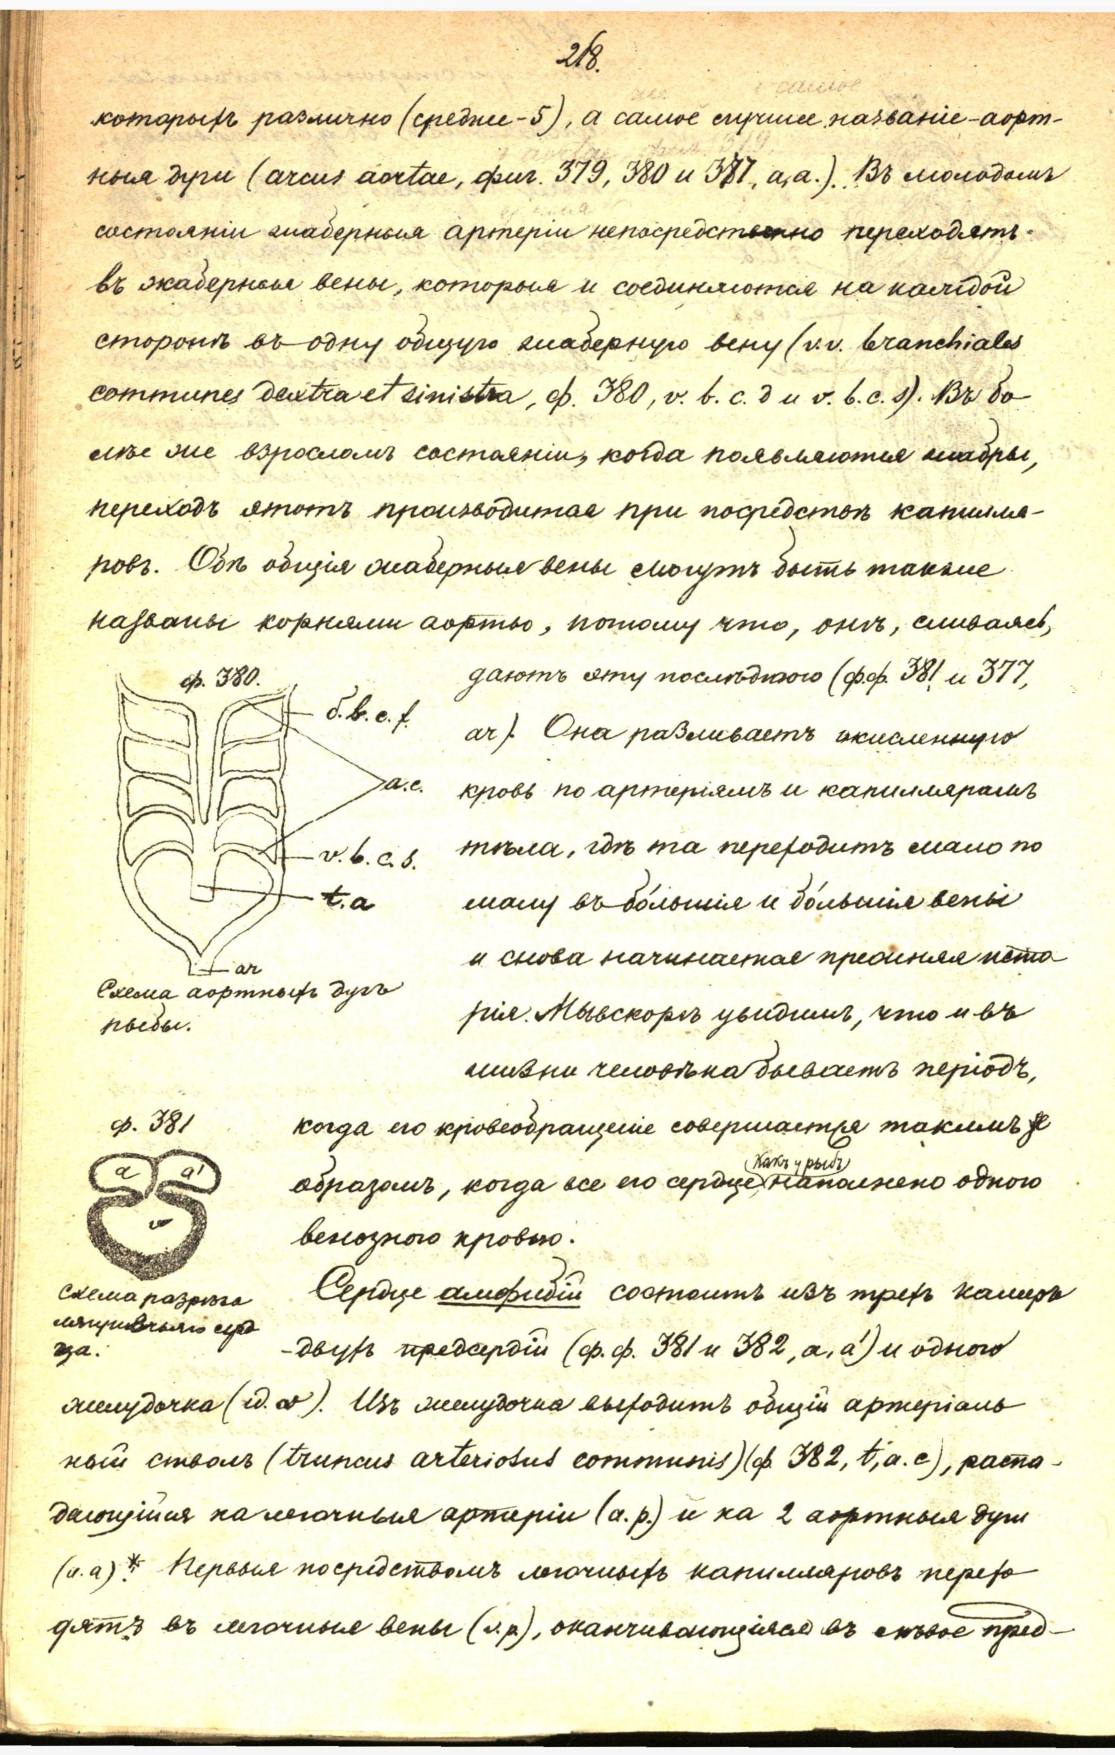 218.
которыхъ различно (среднее - 5), а самое лучшее названіе - аорт-
ныя дуги (arcus aortae, фиг. 379, 380 и 381, a, a.). Въ молодомъ
состояніи жаберныя артеріи непосредственно переходятъ
въ жаберныя вены, которыя и соединяются на каждой
сторонѣ въ одну общую жаберную вену (v.v. branchiales
communes dextra et sinistra, ф. 380, v. b. c. d и v. b. c. s). Въ бо-
лѣе же взросломъ состояніи, когда появляются жабры,
переходъ этотъ производится при посредствѣ капилля-
ровъ. Обѣ общія жаберныя вены могутъ быть также
названы корнями аорты, потому что, онѣ, сливаясь,
ф. 380.
v. b. c. d.
a. c.
v. b. c. s.
t. a
ar
Схема аортныхъ дугъ
рыбы.
даютъ эту послѣднюю (ф.ф. 381 и 377,
ar). Она разливаетъ окисленную
кровь по артеріямъ и капиллярамъ
тѣла, гдѣ та переходитъ мало по
малу въ бо́льшія и бо́льшія вены
и снова начинается прежняя исто
рія. Мы вскорѣ увидимъ, что и въ
жизни человѣка бываетъ періодъ,
ф. 381
a a'
v
Схема разрѣза
лягушечьяго серд
ца.
когда его кровеобращеніе совершается такимъ же
образомъ, когда все его сердце (какъ у рыбъ) наполнено одною
венозною кровью.
Сердце амфибій состоитъ изъ трехъ камеръ
- двухъ предсердій (ф.ф. 381 и 382, a, a') и одного
желудочка (id. v). Изъ желудочка выходитъ общій артеріаль
ный стволъ (truncus arteriosus communis) (ф. 382, t, a. c), распа-
дающійся на легочныя артеріи (a. p.) и на 2 аортныя дуги
(a. a)*. Первыя посредствомъ легочныхъ капилляровъ перехо
дятъ въ легочныя вены (v. p), оканчивающіяся въ лѣвое пред-